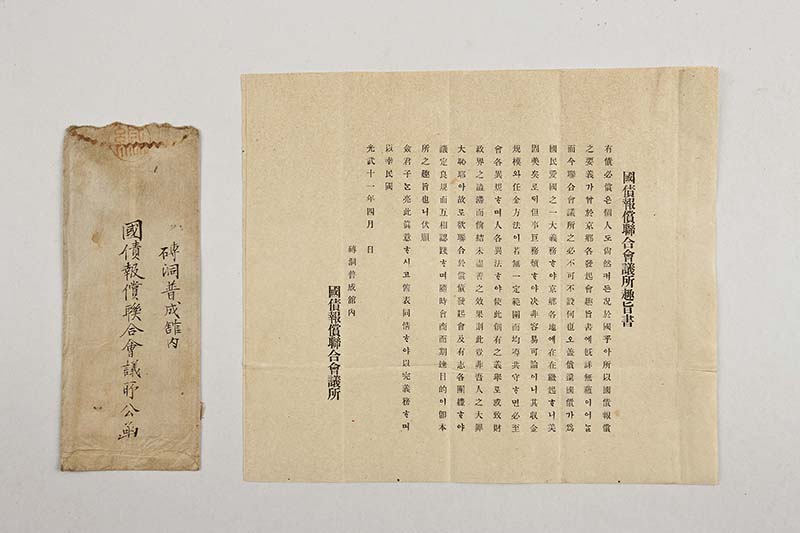 國債報償聯合會議所趣旨書
有債必償은個人도尙然커든況於國乎아所以國債報償
之要義가曾於京鄕各發起會趣旨書에旣詳無蘊이어늘
而今聯合會議所之必不可不設何也오盖償還國債가爲
國民愛國之一大義務ᄒᆞ야京鄕各地에在在繼起ᄒᆞ니美
固美矣로ᄃᆡ但事巨務煩ᄒᆞ야决非容易可論이니其收金
規模와任金方法이若無一定範圍而均導共守ᄒᆞ면必至
會各異規ᄒᆞ며人各異法ᄒᆞ야使此創有之義擧로或致財
政界之澁滯而倘結未盡善之效果則此豈非吾人之大歎
大恥耶아故로欲聯合於償債發起會及有志各團體ᄒᆞ야
議定良規而互相認踐ᄒᆞ며隨時會商而期達目的이卽本
所之趣旨也니伏願
僉君子ᄂᆞᆫ亮此眞意ᄒᆞ시고舊表同情ᄒᆞ야以完義務ᄒᆞ며
以幸民國
光武十一年四月 日
磚洞普成館內
國債報償聯合會議所
磚洞普成舘內
國債報償聯合會議所公函